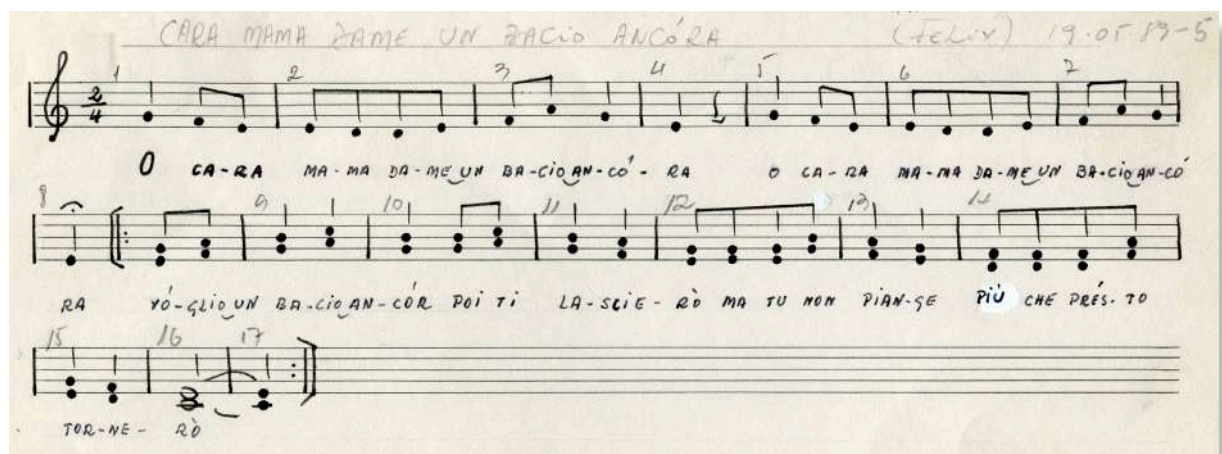 CARA MAMA DAME UN BACIO ANCÓRA (FELIX) 19.05.89-5
1 2 3 4 5 6 7
2/4
O CA-RA MA-MA DA-ME UN BA-CIO AN-CÓ-RA O CA-RA MA-MA DA-ME UN BA-CIO AN-CÓ
8 9 10 11 12 13 14
RA VÓ-GLIO UN BA-CIO AN-CÓR POI TI LA-SCIE-RÒ MA TU NON PIAN-GE PIÙ CHE PRÉS-TO
15 16 17
TOR-NE-RÒ